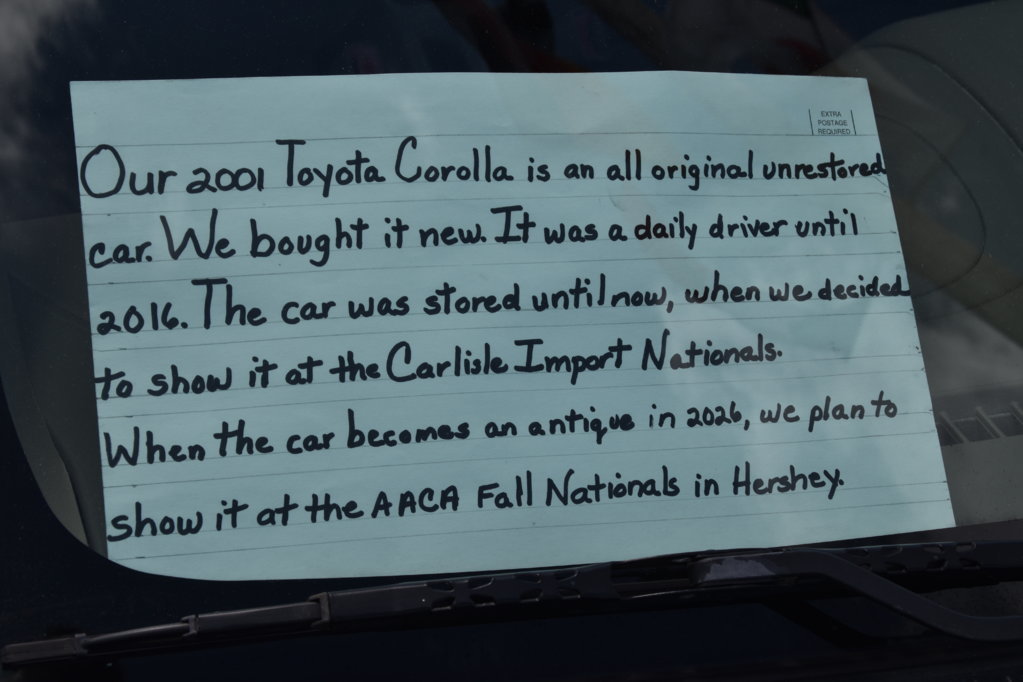 EXTRA
POSTAGE
REQUIRED
Our 2001 Toyota Corolla is an all original unrestored
car. We bought it new. It was a daily driver until
2016. The car was stored until now, when we decided
to show it at the Carlisle Import Nationals.
When the car becomes an antique in 2026, we plan to
show it at the AACA Fall Nationals in Hershey.